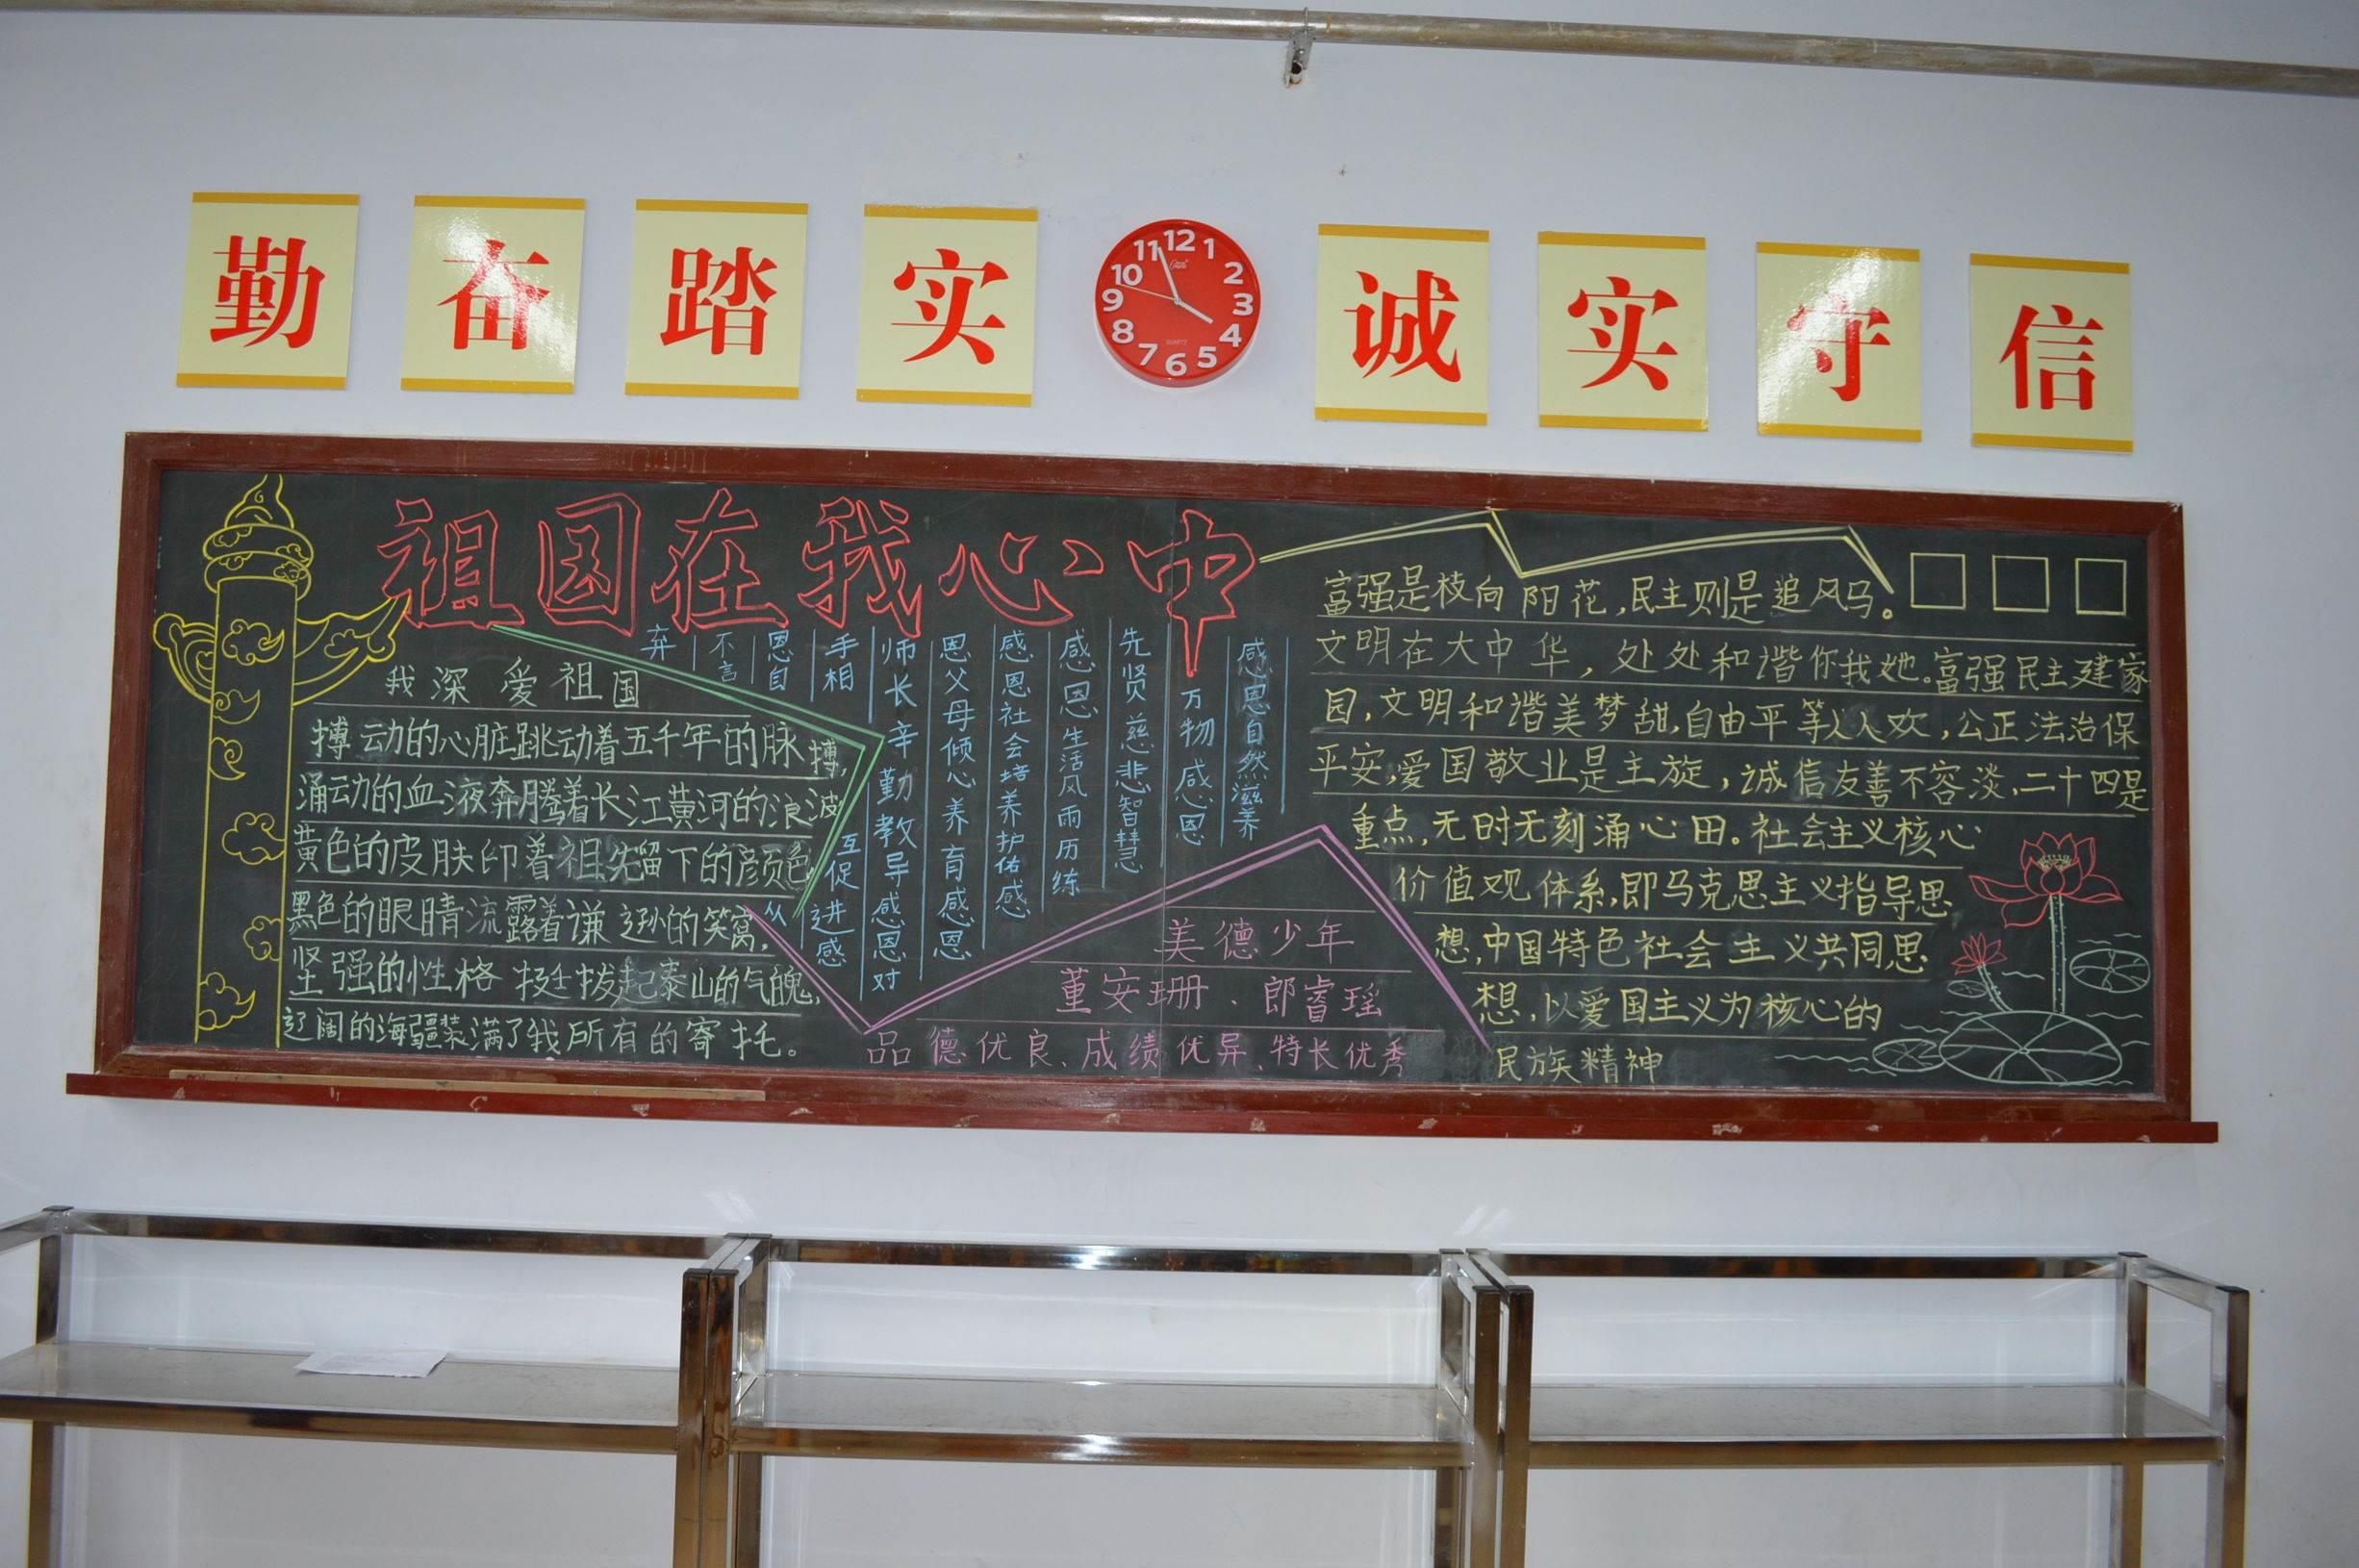 勤奋踏实
诚实守信
12
1
2
3
4
5
6
7
8
9
10
11
QUARTZ
祖国在我心中
我深爱祖国
搏动的心脏跳动着五千年的脉搏,
涌动的血液奔腾着长江黄河的浪波
黄色的皮肤印着祖先留下的颜色
黑色的眼睛流露着谦逊的笑窝,
坚强的性格挺拔起泰山的气魄,
辽阔的海疆装满了我所有的寄托。
感恩自然滋养
万物感恩
先贤慈悲智慧
感恩生活风雨历练
感恩社会培养护佑感
恩父母倾心养育感恩
师长辛勤教导感恩对
手相互促进感
恩自从
不言
弃
美德少年
董安珊、郎睿瑶
品德优良、成绩优异、特长优秀
富强是枝向阳花,民主则是追风马。□□□
文明在大中华,处处和谐你我她。富强民主建家
园,文明和谐美梦甜,自由平等人人欢,公正法治保
平安,爱国敬业是主旋,诚信友善不容淡,二十四是
重点,无时无刻涌心田。社会主义核心
价值观体系,即马克思主义指导思
想,中国特色社会主义共同思
想,以爱国主义为核心的
民族精神